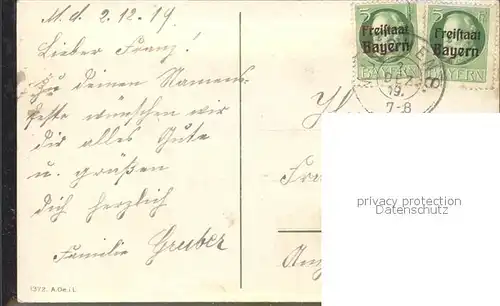 M. d. 2.12.19.
Lieber Franz!
zu deinen Namens-
feste wünschen wir
dir alles Gute
u. grüßen
dich herzlich
Familie Gruber
1372. A.De.i.L.
5
Freistaat
Bayern
BAYERN
5
Freistaat
Bayern
BAYERN
19.
7-8
privacy protection
Datenschutz